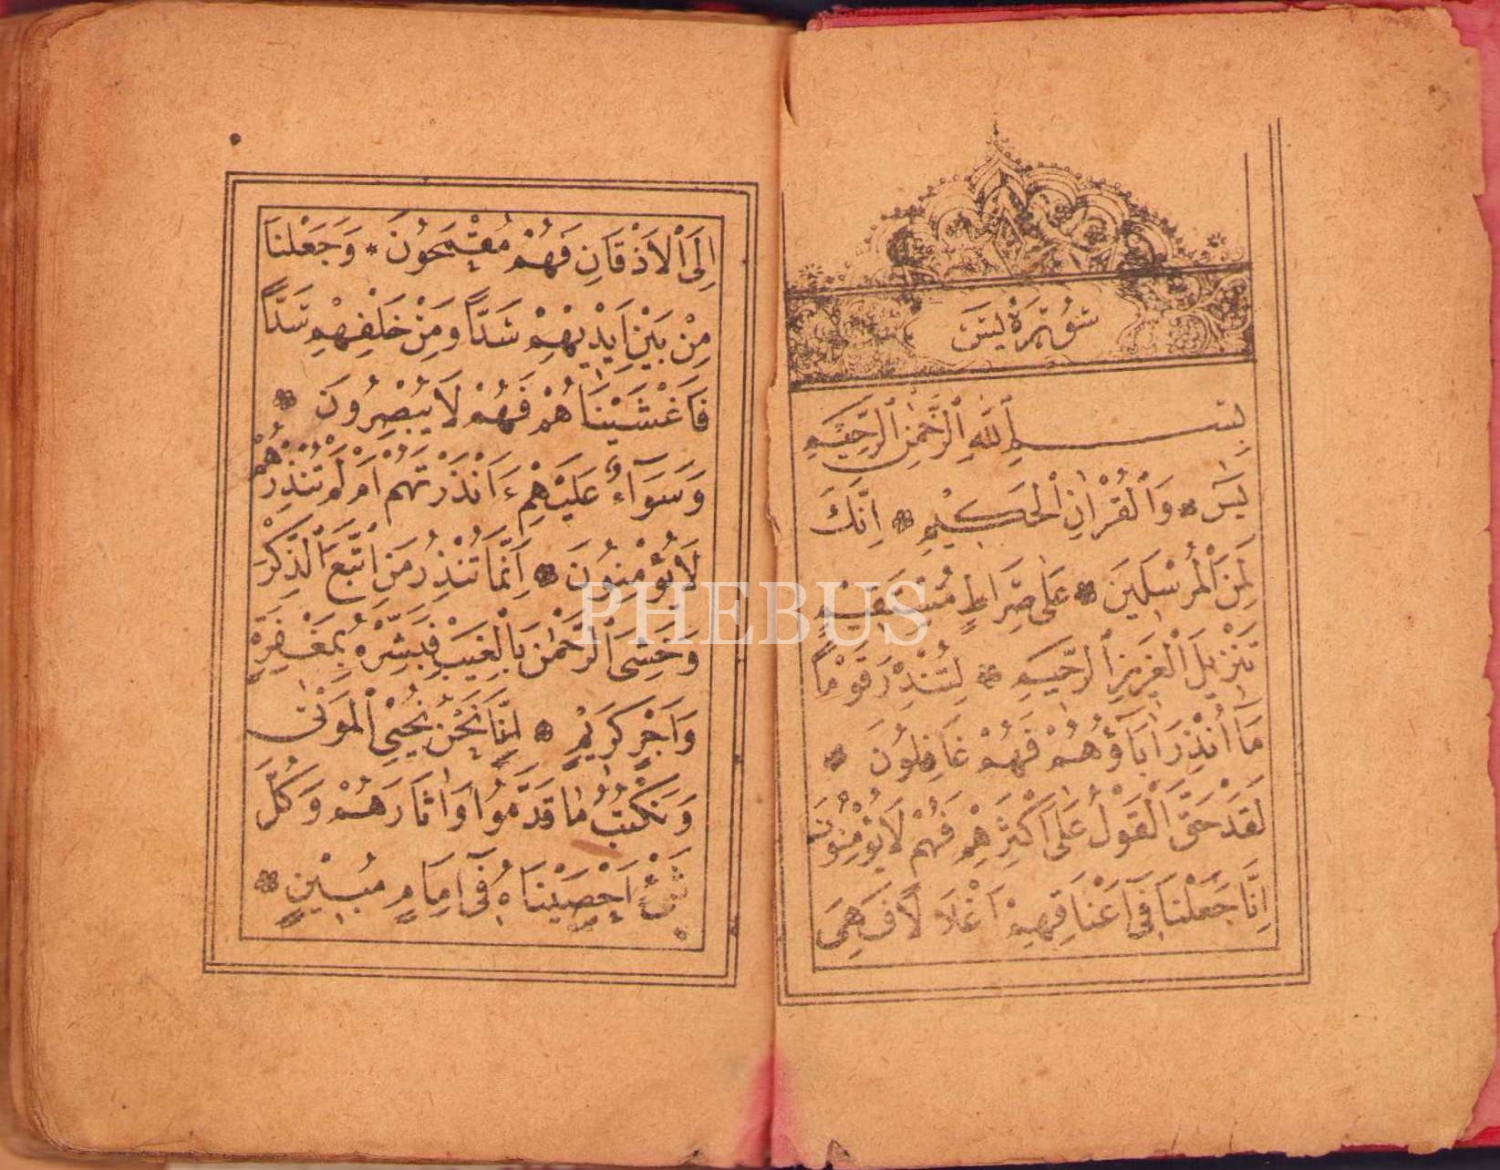 سورة يس
بِسْمِ اللّٰهِ الرَّحْمٰنِ الرَّحِيمِ
يٰسٓ * وَالْقُرْاٰنِ الْحَكِيمِ * اِنَّكَ
لَمِنَ الْمُرْسَلِينَ * عَلٰى صِرَاطٍ مُسْتَقِيمٍ
تَنْزِيلَ الْعَزِيزِ الرَّحِيمِ * لِتُنْذِرَ قَوْمًا
مَآ اُنْذِرَ اٰبَآؤُهُمْ فَهُمْ غَافِلُونَ *
لَقَدْ حَقَّ الْقَوْلُ عَلٰٓى اَكْثَرِهِمْ فَهُمْ لَا يُؤْمِنُونَ
اِنَّا جَعَلْنَا فِىٓ اَعْنَاقِهِمْ اَغْلَالًا فَهِىَ
اِلَى الْاَذْقَانِ فَهُمْ مُقْمَحُونَ * وَجَعَلْنَا
مِنْ بَيْنِ اَيْدِيهِمْ سَدًّا وَمِنْ خَلْفِهِمْ سَدًّا
فَاَغْشَيْنَاهُمْ فَهُمْ لَا يُبْصِرُونَ *
وَسَوَآءٌ عَلَيْهِمْ ءَاَنْذَرْتَهُمْ اَمْ لَمْ تُنْذِرْهُمْ
لَا يُؤْمِنُونَ * اِنَّمَا تُنْذِرُ مَنِ اتَّبَعَ الذِّكْرَ
وَخَشِىَ الرَّحْمٰنَ بِالْغَيْبِ فَبَشِّرْهُ بِمَغْفِرَةٍ
وَاَجْرٍ كَرِيمٍ * اِنَّا نَحْنُ نُحْيِى الْمَوْتٰى
وَنَكْتُبُ مَا قَدَّمُوا وَاٰثَارَهُمْ وَكُلَّ
شَىْءٍ اَحْصَيْنَاهُ فِىٓ اِمَامٍ مُبِينٍ *
PHEBUS